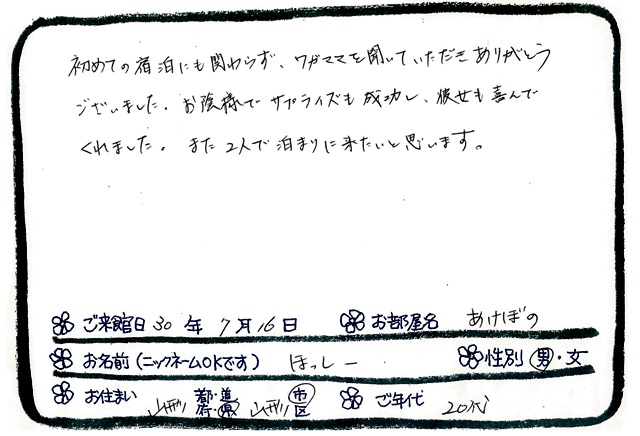 初めての宿泊にも関わらず、ワガママを聞いていただきありがとう
ございました。お陰様でサプライズも成功し、彼女も喜んで
くれました。また2人で泊まりに来たいと思います。
ご来館日 30 年 7月 16日 お部屋名 あけぼの
お名前(ニックネームOKです) ほっしー 性別 男・女
お住まい 山形 都・道・府・県 山形 市・区 ご年代 20代